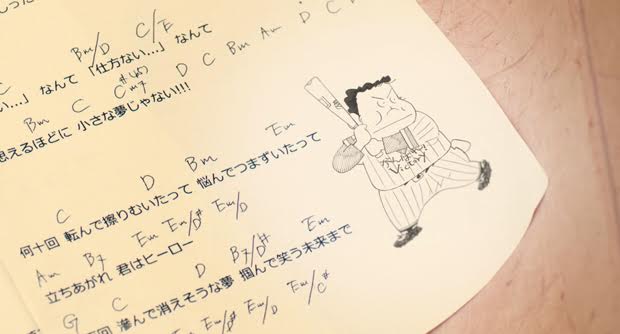 Bm/D C/E
なんて 「仕方ない…」 なんて
Bm C C#m7 D C Bm Am D C
思えるほどに 小さな夢じゃない!!!
C D Bm Em
何十回 転んで擦りむいたって 悩んでつまずいたって
Am B7 Em Em/D# Em/D
立ちあがれ 君はヒーロー
G C D B7/D# Em
回 滲んで消えそうな夢 掴んで笑う未来まで
Em Em/D# Em/D Em/C#
がんばれ
Victory